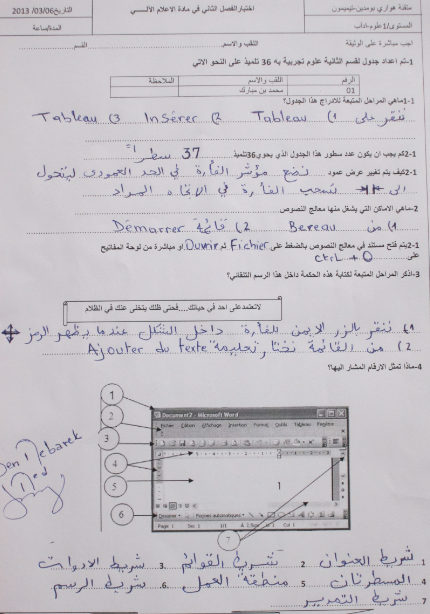 متقنة هواري بومدين-تيميمون
اختبار الفصل الثاني في مادة الاعلام الآلـــــي
التاريخ 03/06/ 2013
المستوى/1علوم-اداب
المدة/ساعة
اجب مباشرة على الوثيقة
اللقب والاسم
القسم
1-تم اعداد جدول لقسم الثانية علوم تجريبية به 36 تلميذ على النحو الاتي
الرقم اللقب والاسم الملاحظة
01 محمد بن مبارك
1-1ماهي المراحل المتبعة للادراج هذا الجدول؟
ننقر على 1) Tableau 2) Insérer 3) Tableau
1-2كم يجب ان يكون عدد سطور هذا الجدول الذي يحوي36تلميذ 37 سطرا
1-2كيف يتم تغيير عرض عمود نضع مؤشر الفأرة في الحد العمودي ليتحول
الى نسحب الفأرة في الاتجاه المراد
2-ماهي الاماكن التي يشغل منها معالج النصوص
1) من Bereau 2) قائمة Démarrer
2-1يتم فتح مستند في معالج النصوص بالضغط على Fichier ثم Ouvrir او مباشرة من لوحة المفاتيح
على Ctrl + O
3-اذكر المراحل المتبعة لكتابة هذه الحكمة داخل هذا الرسم التلقائي؟
لاتعتمد على احد في حياتك....فحتى ظلك يتخلى عنك في الظلام
1) ننقر بالزر الايمن للفأرة داخل الشكل عندما يظهر الرمز
2) من القائمة نختار تعليمة Ajouter du texte
4-ماذا تمثل الارقام المشار اليها؟
1
2
3
4
5
6
7
Document2 - Microsoft Word
Fichier Edition Affichage Insertion Format Outils Tableau Fenêtre
1
Dessin Formes automatiques
Page 1 Sec 1 1/1 Li 1 Col 1
1 شريط العنوان 2 شريط القوائم 3. شريط الادوات
4 المسطرتان 5 منطقة العمل 6. شريط الرسم
7 شريط التمرير